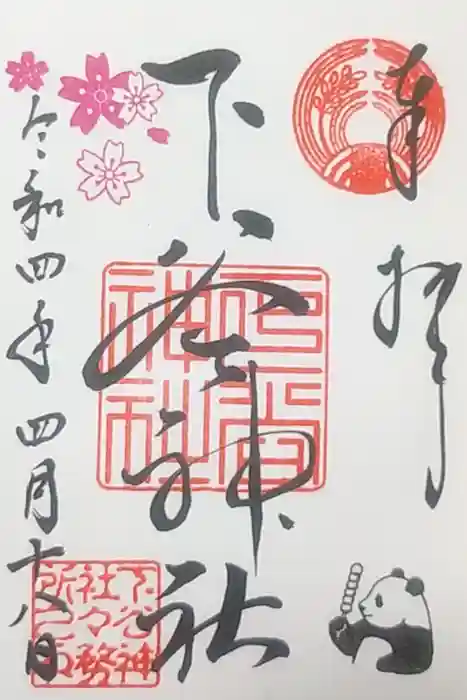 奉拝
下谷神社
下谷神社
令和四年四月十八日
下谷神社々務所之印